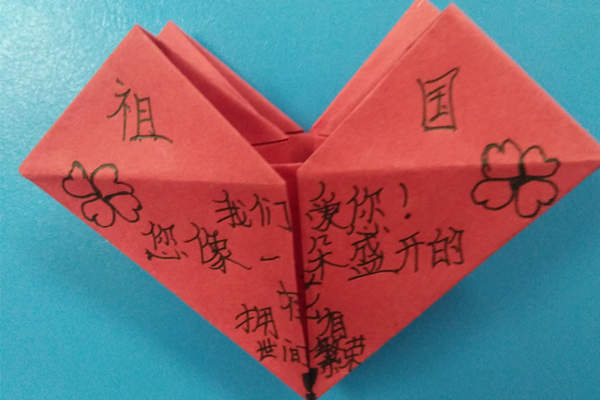 祖国
我们爱你！
您像一朵盛开的
花
拥有
世间繁荣